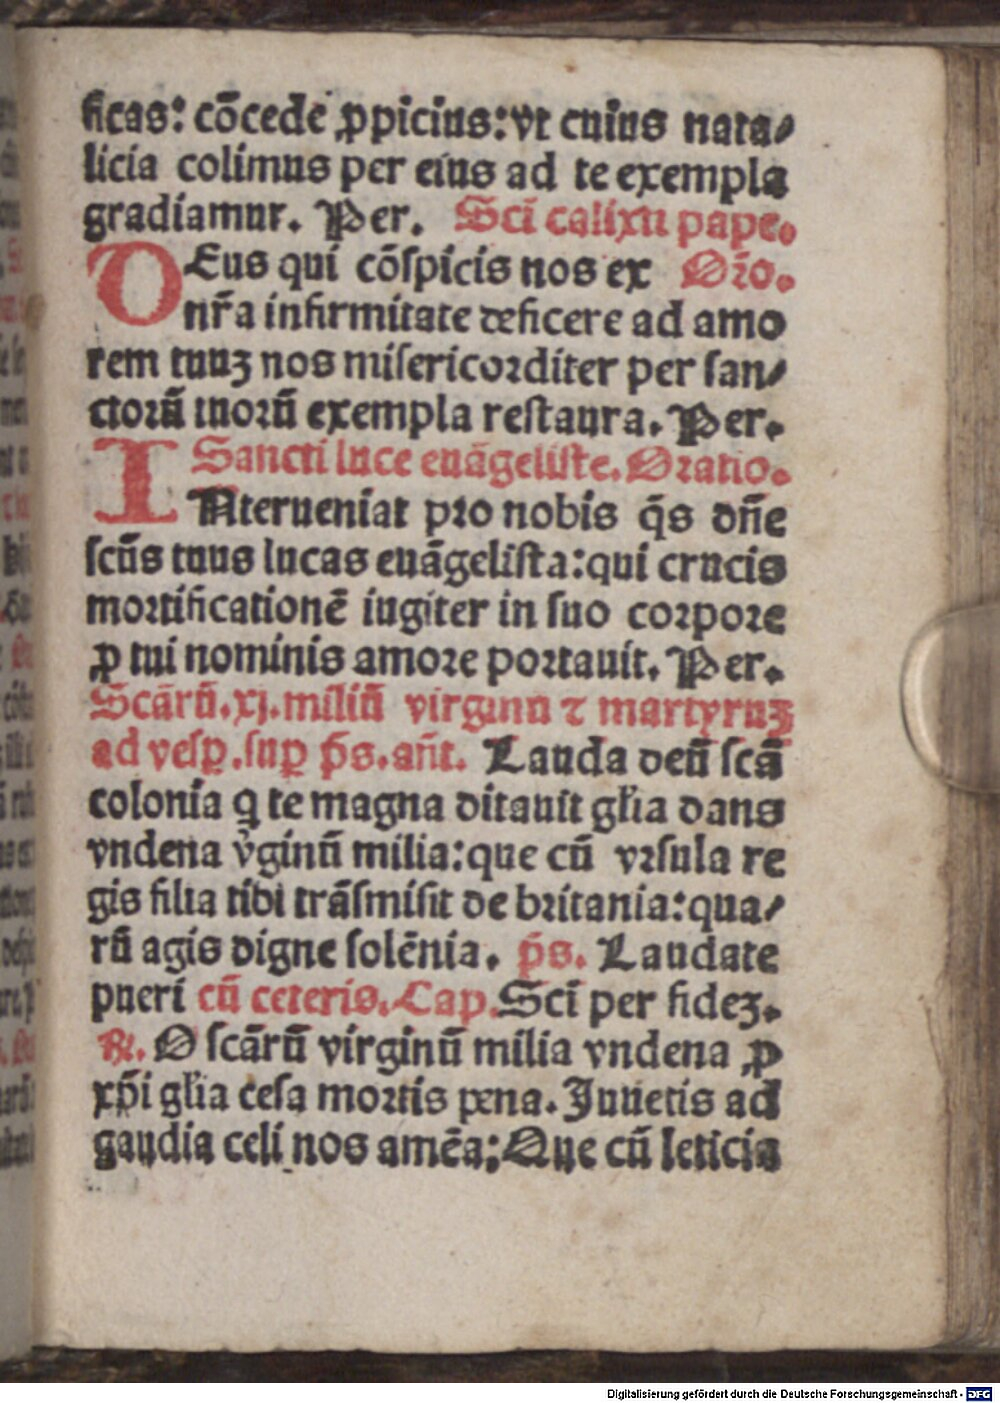 ficas: cōcede ꝓpicius: vt cuius nata⸗
licia colimus per eius ad te exempla
gradiamur. Per. Sci̅ calixti pape.
DEus qui cōſpicis nos ex Or̄o.
nr̄a infirmitate deficere ad amo
rem tuuꝫ nos miſericorditer per ſan⸗
ctorū tuorū exempla reſtaura. Per.
Sancti luce euāgeliſte. Oratio.
INterueniat pro nobis q̄s dn̄e
ſcūs tuus lucas euāgeliſta: qui crucis
mortificationē iugiter in ſuo corpore
ꝓ tui nominis amore portauit. Per.
Scārū. xj. miliū virginū ⁊ martyruꝫ
ad veſꝑ. ſuꝑ p̄s. an̄t. Lauda deū ſcā
colonia q̄ te magna ditauit gl̄ia dans
vndena v̓ginū milia: que cū vrſula re
gis filia tibi trāſmiſit de britania: qua⸗
rū agis digne ſolēnia. p̄s. Laudate
pueri cū ceteris. Cap. Sci̅ per fideꝫ.
℟. O ſcārū virginū milia vndena ꝓ
xp̄i gl̄ia ceſa mortis pena. Juuetis ad
gaudia celi nos amēa; Que cū leticia
Digitalisierung gefördert durch die Deutsche Forschungsgemeinschaft - DFG